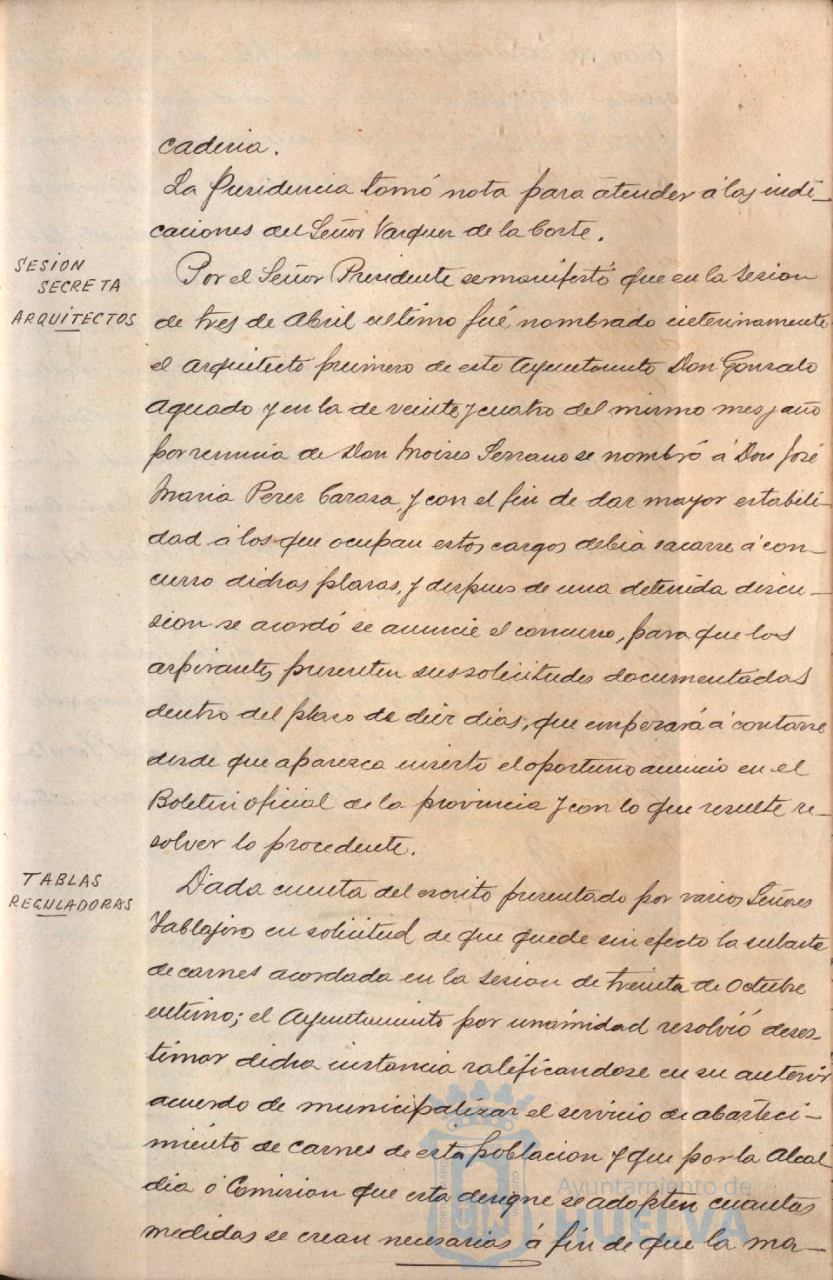 caderia.
La Presidencia tomó nota para atender á las indi-
caciones del Señor Vazquez de la Corte.
SESION
SECRETA
ARQUITECTOS
Por el Señor Presidente se manifestó que en la sesion
de tres de Abril ultimo fué nombrado interinamente
el arquitecto primero de este Ayuntamiento Don Gonzalo
Aguado y en la de veinte y cuatro del mismo mes y año
por renuncia de Don Moises Serrano se nombró á Don José
Maria Perez Carasa, y con el fin de dar mayor estabili-
dad á los que ocupan estos cargos debia sacarse á con-
curso dichas plazas, y despues de una detenida discu-
sion se acordó se anuncie el concurso, para que los
aspirantes presenten sus solicitudes documentadas
dentro del plazo de diez dias, que empezará á contarse
desde que aparezca inserto el oportuno anuncio en el
Boletin oficial de la provincia y con lo que resulte re-
solver lo procedente.
TABLAS
REGULADORAS
Dada cuenta del escrito presentado por varios Señores
Tablajeros en solicitud de que quede sin efecto la subasta
de carnes acordada en la sesion de treinta de Octubre
ultimo; el Ayuntamiento por unanimidad resolvió deses-
timar dicha instancia ratificandose en su anterior
acuerdo de municipalizar el servicio de abasteci-
miento de carnes de esta poblacion y que por la Alcal
dia ó Comision que esta designe se adopten cuantas
medidas se crean necesarias á fin de que la mar-
Ayuntamiento de
HUELVA